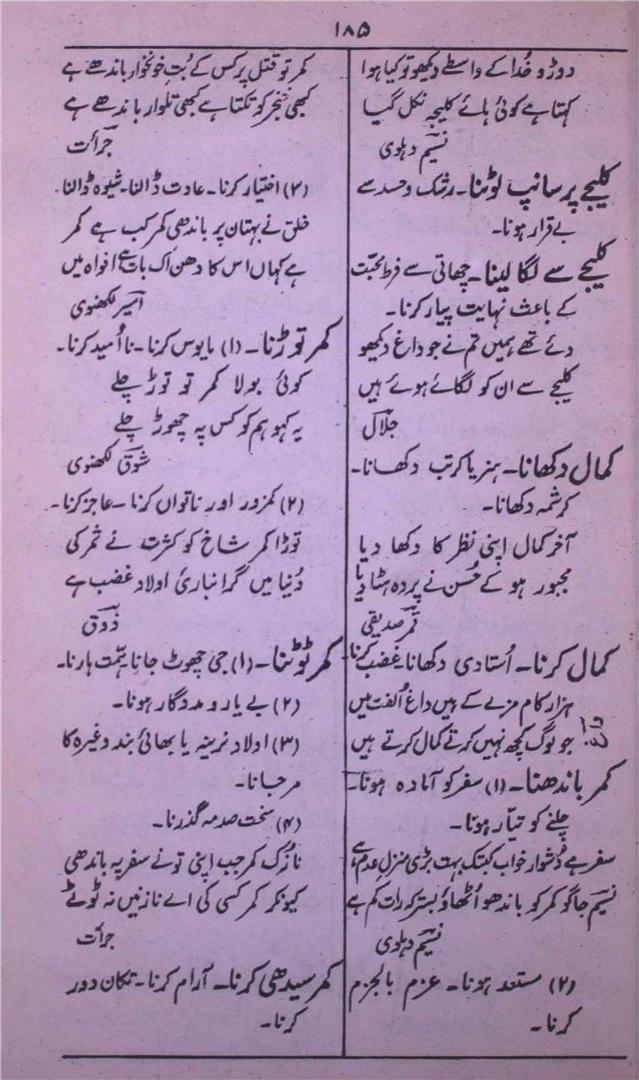 ۱۸۵
دوڑو خُدا کے واسطے دیکھو تو کیا ہوا
کہتا ہے کوئی ہائے کلیجہ نکل گیا
نسیم دہلوی
کلیجے پر سانپ لوٹنا۔ رشک وحسد سے
بے قرار ہونا۔
کلیجے سے لگا لینا۔ چھاتی سے فرط محبّت
کے باعث نہایت پیار کرنا۔
دئے تھے ہمیں تم نے جو داغ دیکھو
کلیجے سے ان کو لگائے ہوئے ہیں
جلال
کمال دکھانا۔ ہنر یا کرتب دکھانا۔
کرشمہ دکھانا۔
آخر کمال اپنی نظر کا دکھا دیا
مجبور ہو کے حُسن نے پردہ ہٹا دیا
قمر صدیقی
کمال کرنا۔ اُستادی دکھانا۔ غضب کرنا
ہزار کام مزے کے ہیں داغ اُلفت میں
جو لوگ کچھ نہیں کرتے کمال کرتے ہیں
داغ
کمر باندھنا۔ (۱) سفر کو آمادہ ہونا۔
چلنے کو تیّار ہونا۔
سفر ہے دُشوار خواب کبتک بہت بڑی منزل عدم ہے
نسیم جاگو کمر کو باندھو اُٹھاؤ بستر کہ رات کم ہے
نسیم دہلوی
(۲) مستعد ہونا۔ عزم بالجزم
کرنا۔
کمر تو قتل پر کس کے بُتِ خونخوار باندھے ہے
کبھی خنجر کو تکتا ہے کبھی تلوار باندھے ہے
جرأت
(۳) اختیار کرنا۔ عادت ڈالنا۔ شیوہ ڈالنا۔
خلق نے بہتان پر باندھی کمر کب ہے کمر
ہے کہاں اس کا دھن اک بات ہے افواہ میں
امیر لکھنوی
کمر توڑنا۔ (۱) مایوس کرنا۔ نا اُمید کرنا۔
کوئی بولا کمر تو توڑ چلے
یہ کہو ہم کو کس پہ چھوڑ چلے
شوق لکھنوی
(۲) کمزور اور ناتواں کرنا۔ عاجز کرنا۔
توڑا کمر شاخ کو کثرت نے ثمر کی
دُنیا میں گرانباریٔ اولاد غضب ہے
ذوق
کمر ٹوٹنا۔ (۱) جی چھوٹ جانا ہمّت ہارنا۔
(۲) بے یار و مددگار ہونا۔
(۳) اولاد نرینہ یا بھائی بند وغیرہ کا
مرجانا۔
(۴) سخت صدمہ گذرنا۔
نازُک کمر جب اپنی تو نے سفر پہ باندھی
کیونکر کمر کسی کی اے نازنیں نہ ٹوٹے
جرأت
کمر سیدھی کرنا۔ آرام کرنا۔ تکان دور
کرنا۔